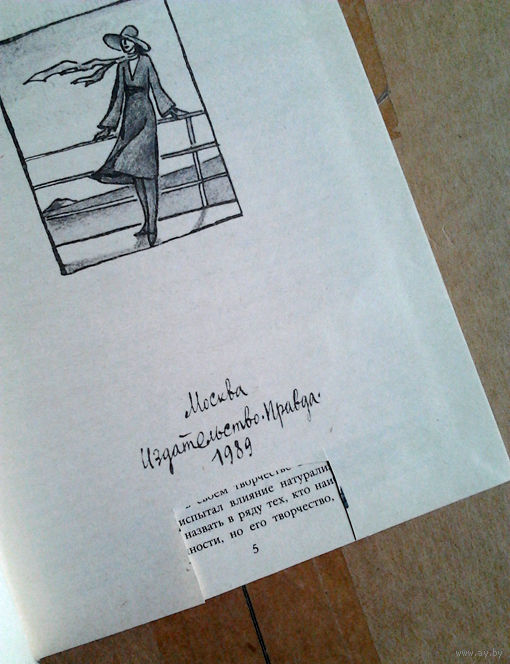 Москва
Издательство·Правда·
1989
своем творчестве
испытал влияние натурали
назвать в ряду тех, кто наи
ности, но его творчество,
5
www.ay.by